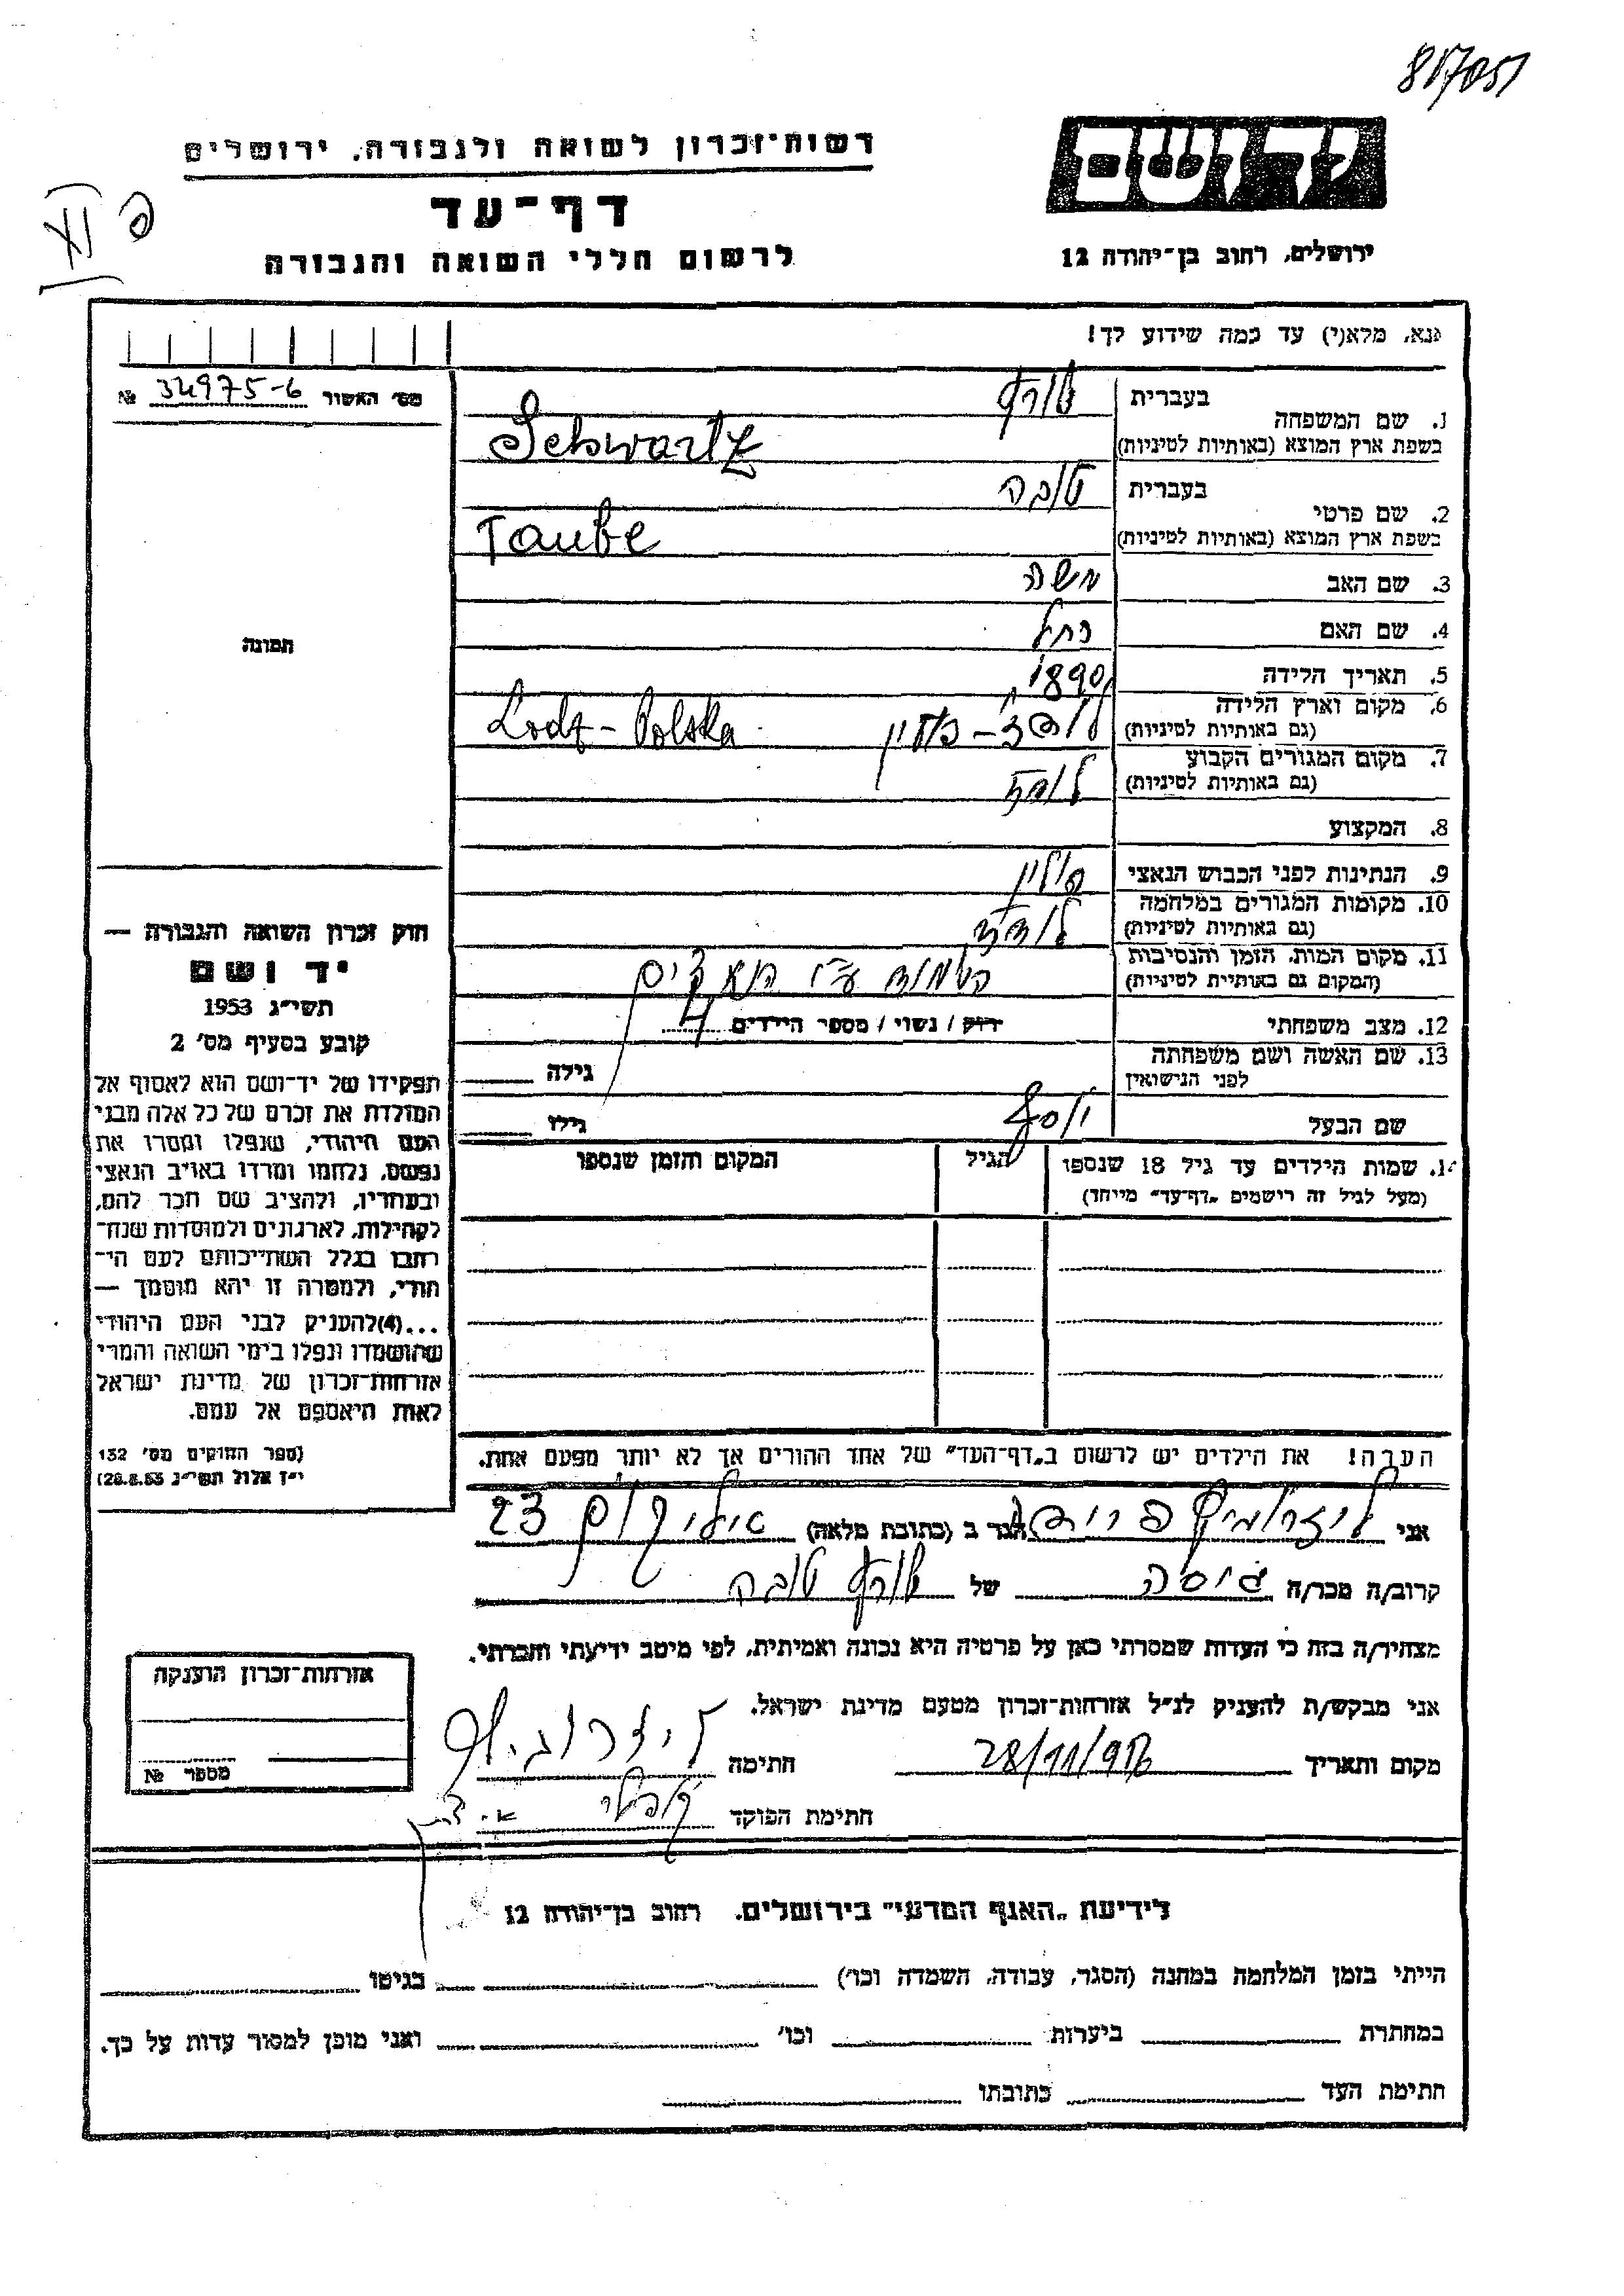 817051
רשות־זכרון לשואה ולגבורה, ירושלים
דף־עד
לרשום חללי השואה והגבורה
ירושלים, רחוב בן־יהודה 12
נא, מלא(י) עד כמה שידוע לך!
מס׳ האשור 34975-6 №
1. שם המשפחה
בעברית שורץ
בשפת ארץ המוצא (באותיות לטיניות) Schwartz
2. שם פרטי
בעברית טובה
בשפת ארץ המוצא (באותיות לטיניות) Taube
3. שם האב משה
4. שם האם רחל
5. תאריך הלידה 1890
6. מקום וארץ הלידה
(גם באותיות לטיניות) לודז - פולין Lodz - Polska
7. מקום המגורים הקבוע
(גם באותיות לטיניות) לודז
8. המקצוע
9. הנתינות לפני הכבוש הנאצי פולין
10. מקומות המגורים במלחמה
(גם באותיות לטיניות) לודז
11. מקום המות, הזמן והנסיבות
(המקום גם באותיית לטיניות) ע״י הנאצים
12. מצב משפחתי רוק / נשוי / מספר הילדים 4
13. שם האשה ושם משפחתה
לפני הנישואין גילה
שם הבעל יוסף גילו
14. שמות הילדים עד גיל 18 שנספו
(מעל לגיל זה רישמים „דף־עד״ מייחד)
הגיל
המקום והזמן שנספו
תמונה
חוק זכרון השואה והגבורה —
יד ושם
תשי״ג 1953
קובע בסעיף מס׳ 2
תפקידו של יד־ושם הוא לאסוף אל
המולדת את זכרם של כל אלה מבני
העם היהודי, שנפלו ומסרו את
נפשם, נלחמו ומרדו באויב הנאצי
ובעוזריו, ולהציב שם וזכר להם,
לקהילות, לארגונים ולמוסדות שנח־
רבו בגלל השתייכותם לעם הי־
הודי, ולמטרה זו יהא מוסמך —
...(4)להעניק לבני העם היהודי
שהושמדו ונפלו בימי השואה והמרי
אזרחות־זכרון של מדינת ישראל
לאות היאספם אל עמם.
(ספר החוקים מס׳ 132
י״ז אלול תשי״ג 28.8.53)
הערה! את הילדים יש לרשום ב„דף־העד״ של אחד ההורים אך לא יותר מפעם אחת.
אני הגר ב (כתובת מלאה) 23
קרוב/ה מכר/ה גיסה של שורץ טובה
מצהיר/ה בזה כי העדות שמסרתי כאן על פרטיה היא נכונה ואמיתית, לפי מיטב ידיעתי והכרתי.
אני מבקש/ת להעניק לנ״ל אזרחות־זכרון מטעם מדינת ישראל.
מקום ותאריך 28/11/956 חתימה
חתימת הפוקד
אזרחות־זכרון הוענקה
מספר №
לידיעת „האגף המדעי״ בירושלים, רחוב בן־יהודה 12
הייתי בזמן המלחמה במחנה (הסגר, עבודה, השמדה וכו׳) בגיטו
במחתרת ביערות וכו׳ ואני מוכן למסור עדות על כך.
חתימת העד כתובתו